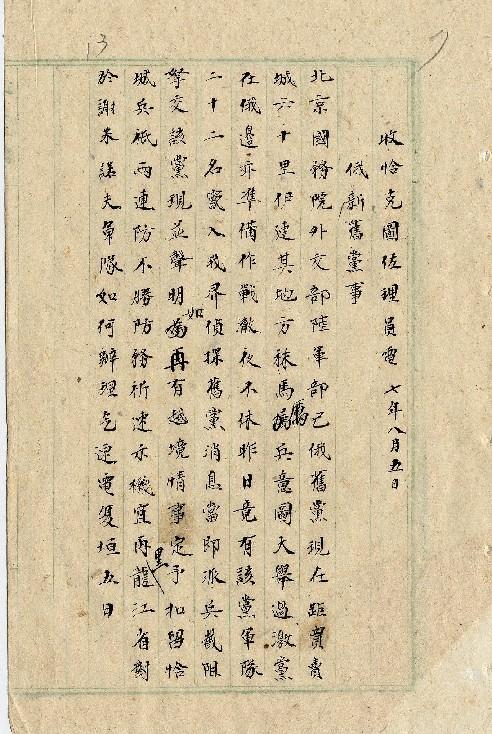 收恰克圖佐理員電 七年八月五日
俄新舊黨事
北京國務院外交部陸軍部已俄舊黨現在距賣賣
城六十里伊達其地方秣馬厲兵意圖大舉過激黨
在俄邊亦準備作戰徹夜不休昨日竟有該黨軍隊
二十二名竄入我界偵探舊黨消息當即派兵截阻
拏交該黨現並聲明如再有越境情事定予扣留恰
城兵祇兩連防不勝防務祈速示機宜再黑龍江省對
於謝米諾夫軍隊如何辦理乞速電復垣五日
13